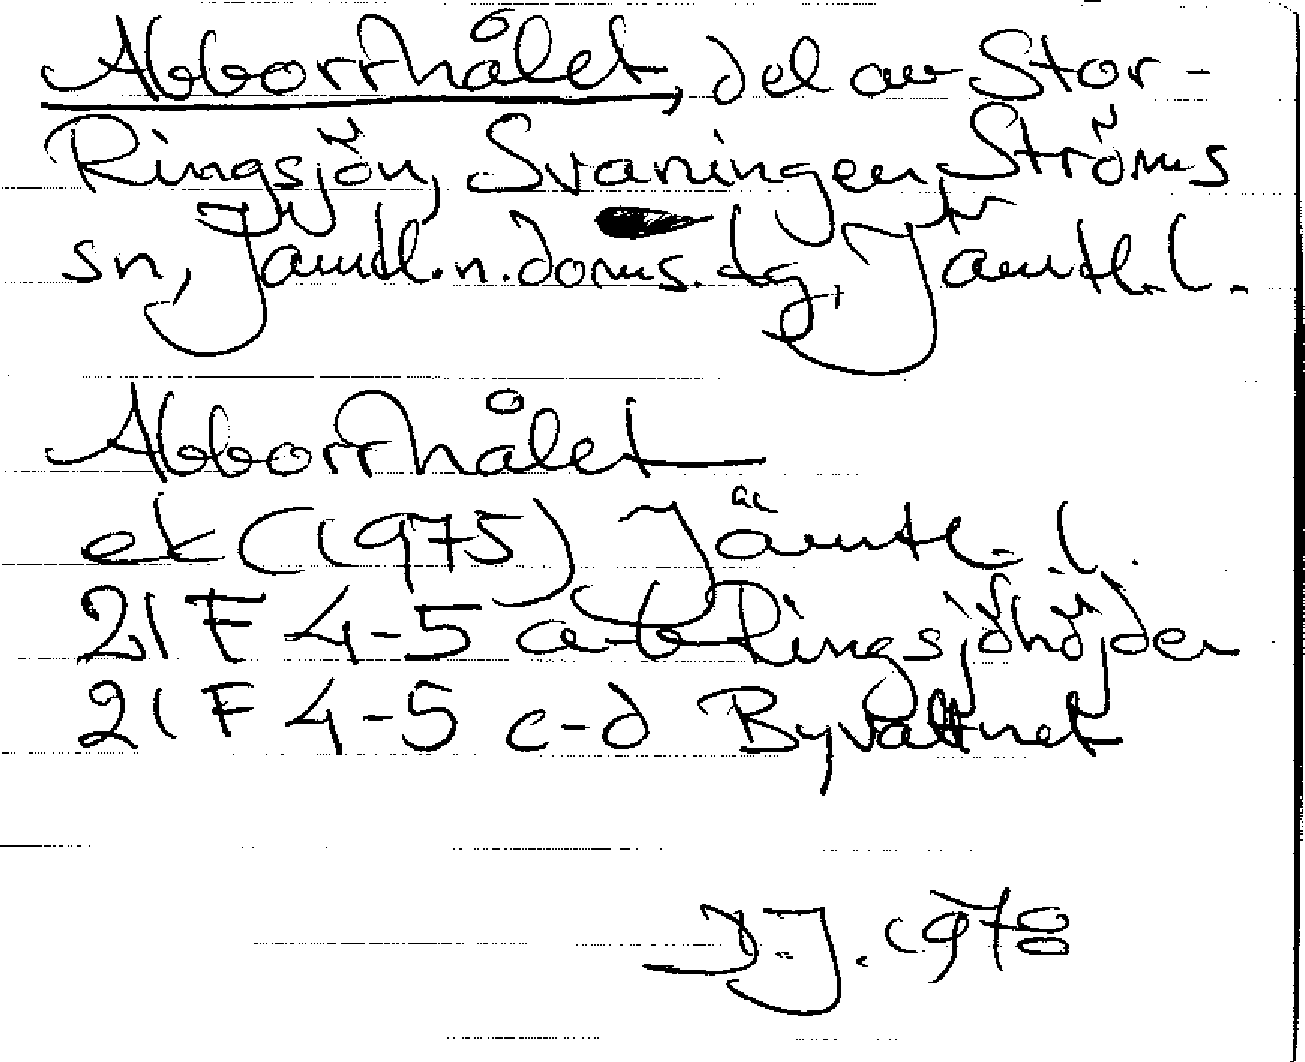 Abborrhålet, del av Stor-
Ringsjön, Svaningen, Ströms
sn, Jämtl. n. doms. tg, Jämtl. l.
Abborrhålet
ek (1975) Jämtl. l.
21 F 4-5 a-b Ringsjöhöjder
21 F 4-5 c-d Byvattnet
D.J. 1978